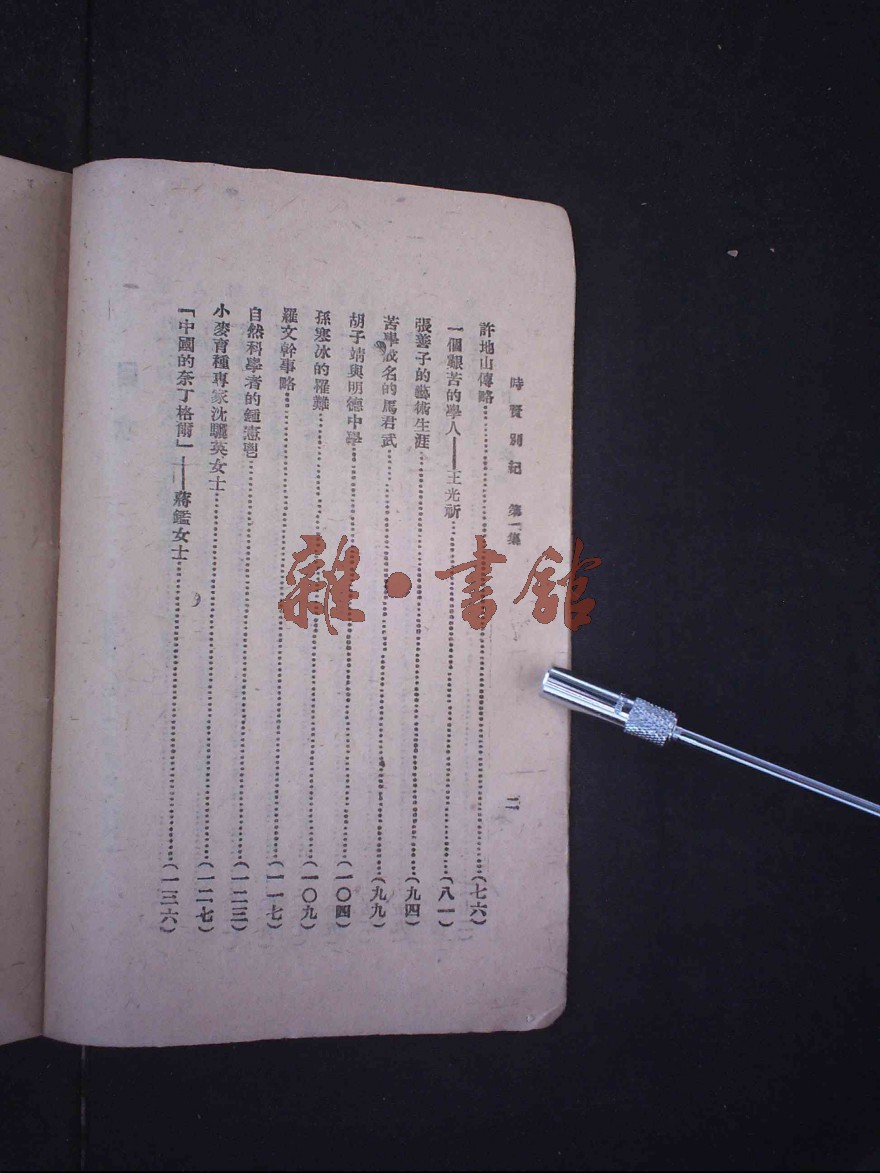 時賢別紀 第一集
二
許地山傳略……(七六)
一個艱苦的學人——王光祈……(八一)
張善子的藝術生涯……(九四)
苦學成名的馬君武……(九九)
胡子靖與明德中學……(一〇四)
孫寒冰的罹難……(一〇九)
羅文幹事略……(一一七)
自然科學者的鍾憲鬯……(一二三)
小麥育種專家沈驪英女士……(一二七)
「中國的奈丁格爾」——蔣鑑女士……(一三六)
雜·書館